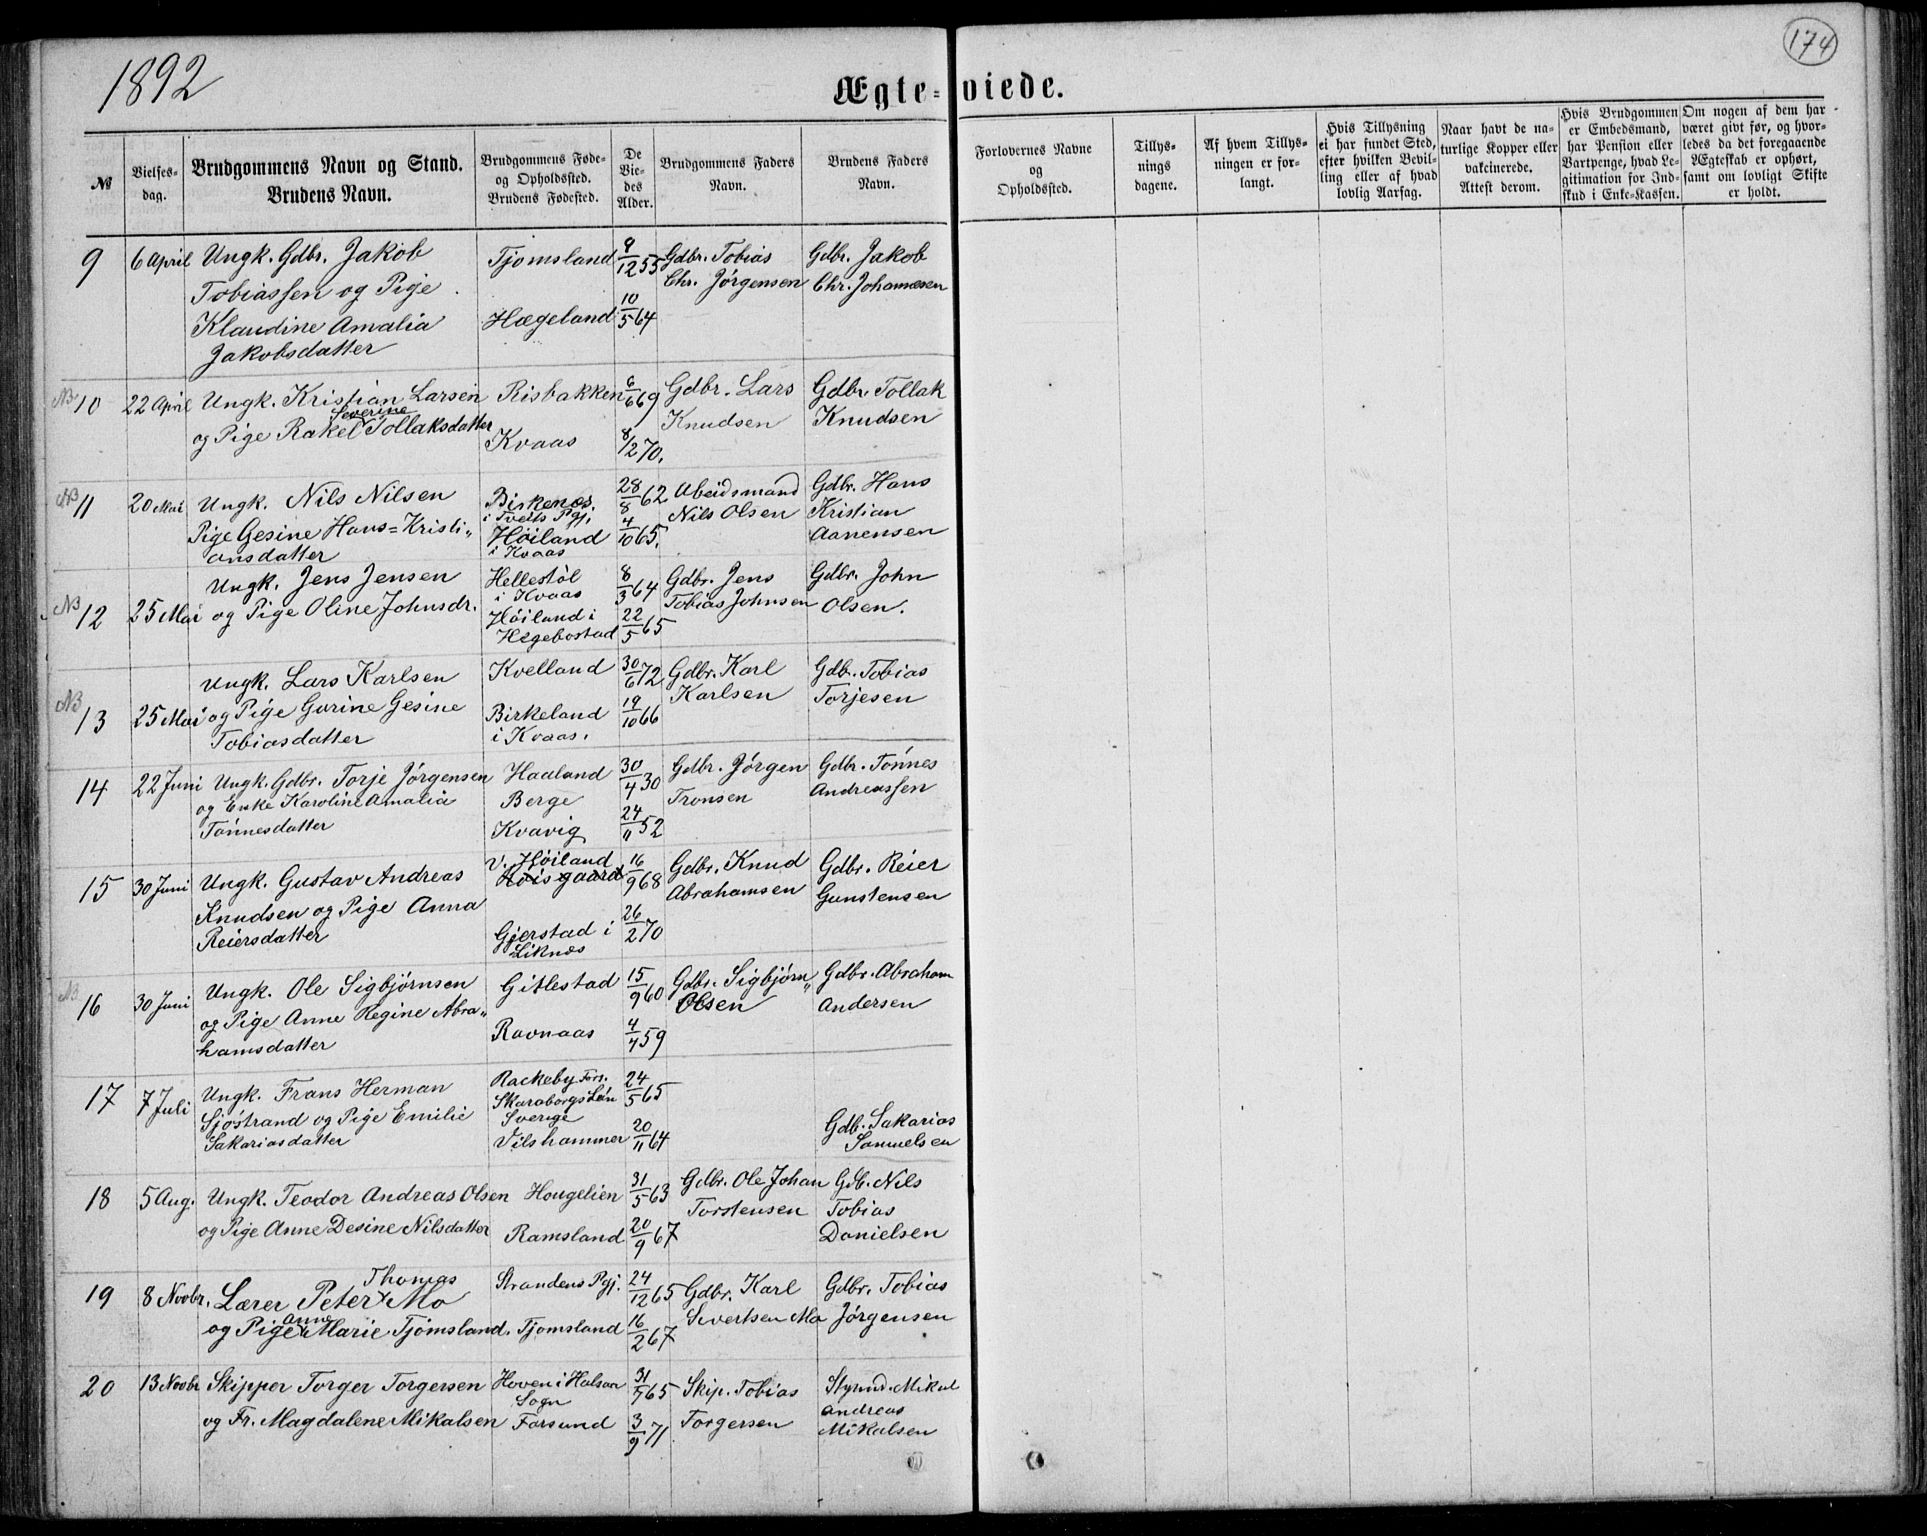 1892
174
Ægte-viede.
№
Vielses-dag.
Brudgommens Navn og Stand.
Brudens Navn.
Brudgommens Føde- og Opholdssted.
Brudens Fødested.
De Vie-des Alder.
Brudgommens Faders Navn.
Brudens Faders Navn.
Forlovernes Navne og Opholdssted.
Tillys-nings dagene.
Af hvem Tillys-ningen er for-langt.
Hvis Tillysning ei har fundet Sted, efter hvilken Bevil-ling eller af hvad lovlig Aarsag.
Naar havt de na-turlige Kopper eller vakcinerede. Attest derom.
Hvis Brudgommen er Embedsmand, har Pension eller Vartpenge, hvad Le-gitimation for Ind-skud i Enke-Kassen.
Om nogen af dem har været givt før, og hvor-ledes da det foregaaende Ægteskab er ophørt, samt om lovligt Skifte er holdt.
9 6 April Ungk. Gdbr. Jakob Tjomsland 9/12 55 Gdbr. Tobias Gdbr. Jakob
Tobiassen og Pige Chr. Jørgensen Chr. Johannesen
Klaudine Amalia Hægeland 10/5 64
Jakobsdatter
NB 10 22 April Ungk. Kristian Larsen Risbakken 6/6 69 Gdbr. Lars Gdbr. Tollak
Severine
og Pige Rakel Tollaksdatter Kvaas 8/2 70. Knudsen Knudsen
NB 11 20 Mai Ungk. Nils Nilsen Birkenes. 28/8 62 Abeidsmand Gdbr. Hans
i Tveits Pgj. Nils Olsen Kristian
Pige Gesine Hans=Kristi" Høiland 4/10 65. Aanensen
ansdatter i Kvaas
NB 12 25 Mai Ungk. Jens Jensen Hellestøl 8/3 64 Gdbr. Jens Gdbr. John
i Kvaas
og Pige Oline Johnsdr. Høiland i 22/5 65 Tobias Johnsen Olsen.
Hegebostad
NB 13 25 Mai Ungk. Lars Karlsen Kvelland 30/6 72 Gdbr. Karl Gdb. Tobias
og Pige Gurine Gesine Birkeland 19/10 66 Karlsen Torjesen
Tobiasdatter i Kvaas.
14 22 Juni Ungk. Gdbr. Torje Jørgensen Haaland 30/4 30 Gdbr. Jørgen Gdbr. Tønnes
og Enke Karoline Amalia Berge Tronsen Andreassen
Tønnesdatter Kvavig 24/11 52
V. Høiland
15 30 Juni Ungk. Gustav Andreas Kvisgaard 16/9 68 Gdbr. Knud Gdbr. Reier
Knudsen og Pige Anna Abrahamsen Gunstensen
Reiersdatter Gjerstad i 26/2 70
Liknes
NB 16 30 Juni Ungk. Ole Sigbjørnsen Gitlestad 15/9 60 Gdbr. Sigbjørn" Gdbr. Abraham
og Pige Anne Regine Abra" Ravnaas 4/4 59 Olsen Andersen
hamsdatter
17 7 Juli Ungk. Frans Herman Rackeby Fors. 24/5 65
Skaraborgs Län
Sjøstrand og Pige Emilie Sverige Gdb. Sakarias
Sakariasdatter Vilshammer 20/11 64 Samuelsen
18 5 Aug. Ungk. Teodor Andreas Olsen Hougelien 31/5 63 Gdbr. Ole Johan Gdb. Nils
og Pige Anne Desine Nilsdatter Ramsland 20/9 67 Torstensen Tobias
Danielsen
Thomas
19 8 Novbr. Lærer Peter Mo Strandens Pgj. 24/12 65 Gdbr. Karl Gdbr. Tobias
Anne
og Pige Marie Tjømsland. Tjomsland 16/2 67 Sivertsen Mo Jørgensen
20 13 Novbr Skipper Torger Torgersen Hoven i Halsaa 31/7 65 Skip. Tobias Styrmd. Mikal
Sogn Andreas
og Fr. Magdalene Mikalsen Farsund 3/9 71 Torgersen Mikalsen